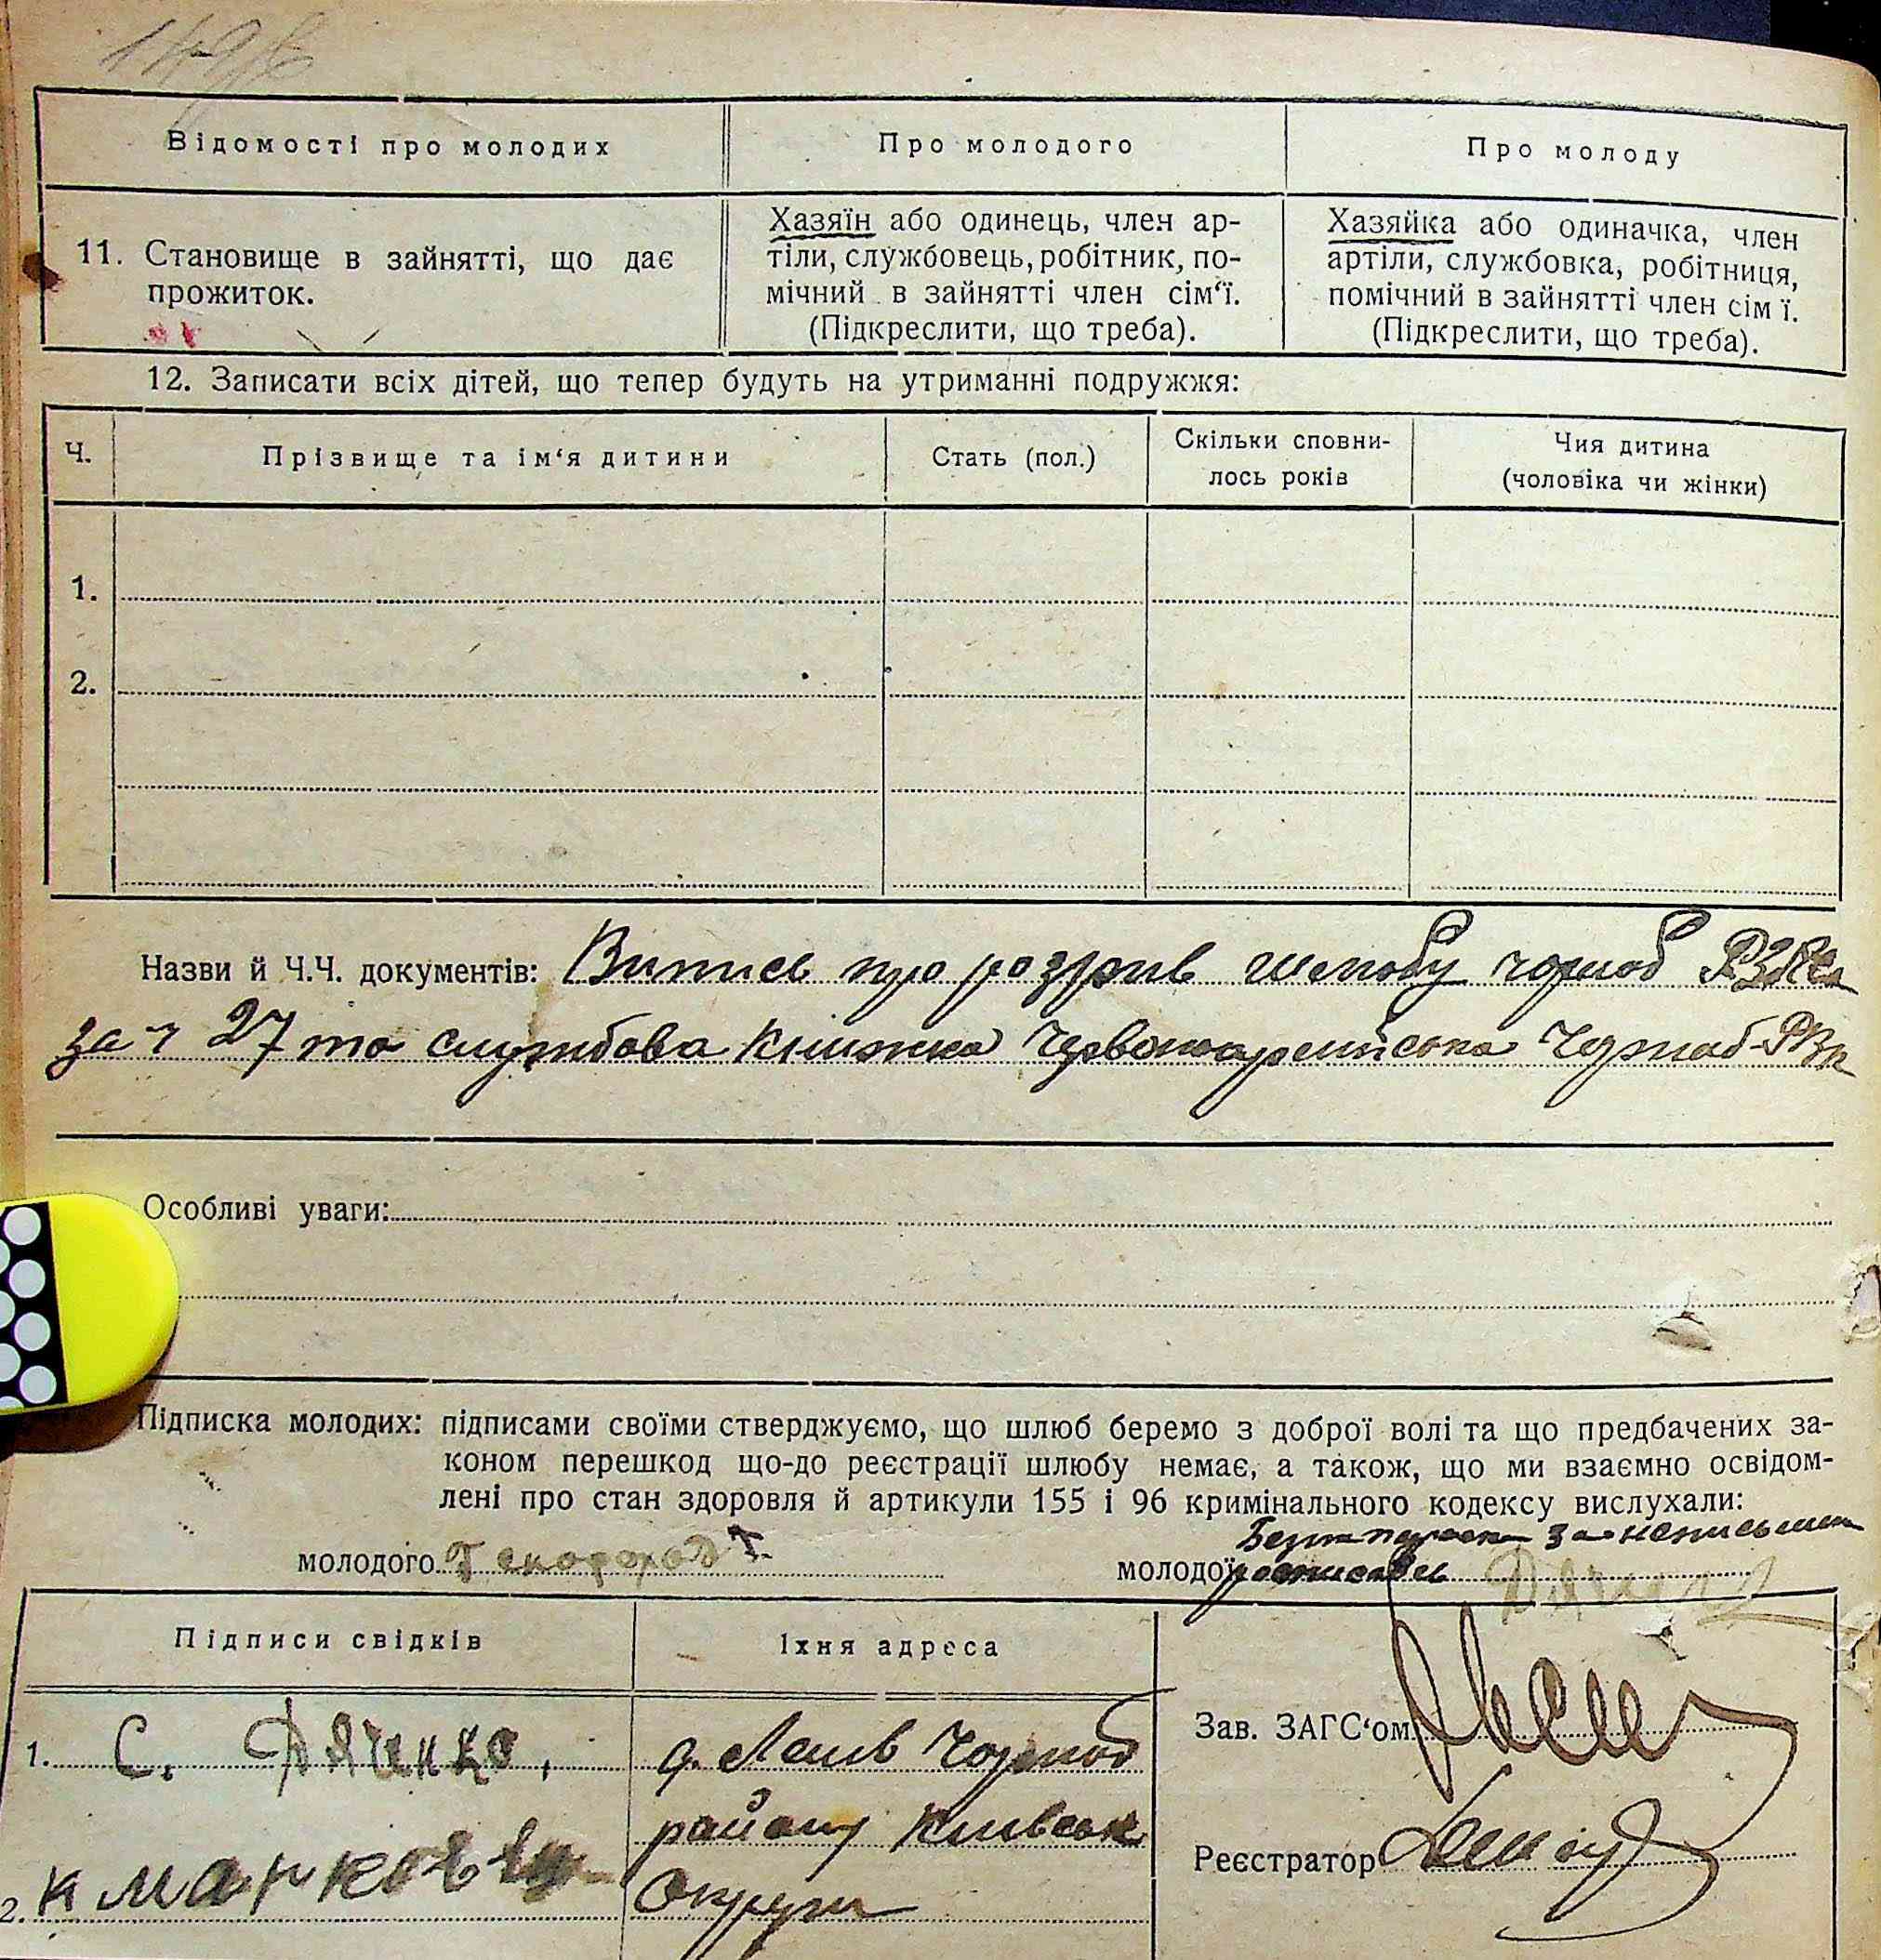 1496
Відомості про молодих
Про молодого
Про молоду
11. Становище в зайнятті, що дає
прожиток.
Хазяїн або одинець, член ар-
тіли, службовець, робітник, по-
мічний в зайнятті член сім‘ї.
(Підкреслити, що треба).
Хазяйка або одиначка, член
артіли, службовка, робітниця,
помічний в зайнятті член сім ї.
(Підкреслити, що треба).
12. Записати всіх дітей, що тепер будуть на утриманні подружжя:
Ч.
Прізвище та ім‘я дитини
Стать (пол.)
Скільки сповни-
лось років
Чия дитина
(чоловіка чи жінки)
1.
2.
Назви й Ч.Ч. документів: Випись про розрив шлюбу чорноб
за ч 27 та службова книжка Червоноармійська
Особливі уваги:
Підписка молодих: підписами своїми стверджуємо, що шлюб беремо з доброї волі та що предбачених за-
коном перешкод що-до реєстрації шлюбу немає, а також, що ми взаємно освідом-
лені про стан здоровля й артикули 155 і 96 кримінального кодексу вислухали:
молодого
молодої росписався
Підписи свідків
Їхня адреса
1. С. Дяченко,
Чорноб
району Київськ
Округи
2. К
Зав. ЗАГС‘ом
Реєстратор